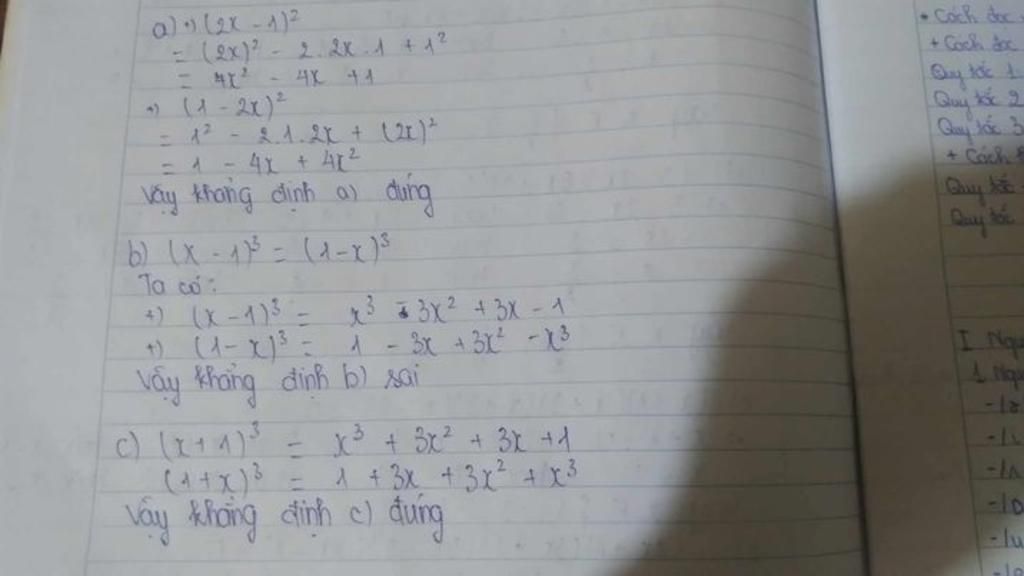 a) +) (2x - 1)²
= (2x)² - 2.2x.1 + 1²
= 4x² - 4x + 1
+) (1 - 2x)²
= 1² - 2.1.2x + (2x)²
= 1 - 4x + 4x²
Vậy khẳng định a) đúng
b) (x - 1)³ = (1 - x)³
Ta có:
+) (x - 1)³ = x³ - 3x² + 3x - 1
+) (1 - x)³ = 1 - 3x + 3x² - x³
Vậy khẳng định b) sai
c) (x + 1)³ = x³ + 3x² + 3x + 1
(1 + x)³ = 1 + 3x + 3x² + x³
Vậy khẳng định c) đúng
• Cách đọc
+ Cách đọc
Quy tắc 1
Quy tắc 2
Quy tắc 3
+ Cách
Quy tắc
Quy tắc
I
1